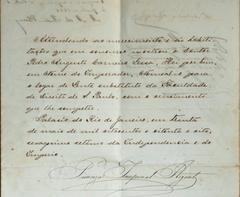 Attendendo ao merecimento e ás habili-
tações que em concurso mostrou o Doutor
Pedro Augusto Carneiro Lessa, Hei por bem,
em Nome do Imperador, Nomeal-o para
o lugar de Lente substituto da Faculdade
de Direito de S. Paulo, com o vencimento
que lhe competir.
Palacio do Rio de Janeiro, em trinta
de maio de mil oitocentos e oitenta e oito,
sexagesimo setimo da Independencia e do
Imperio.
Princeza Imperial Regente